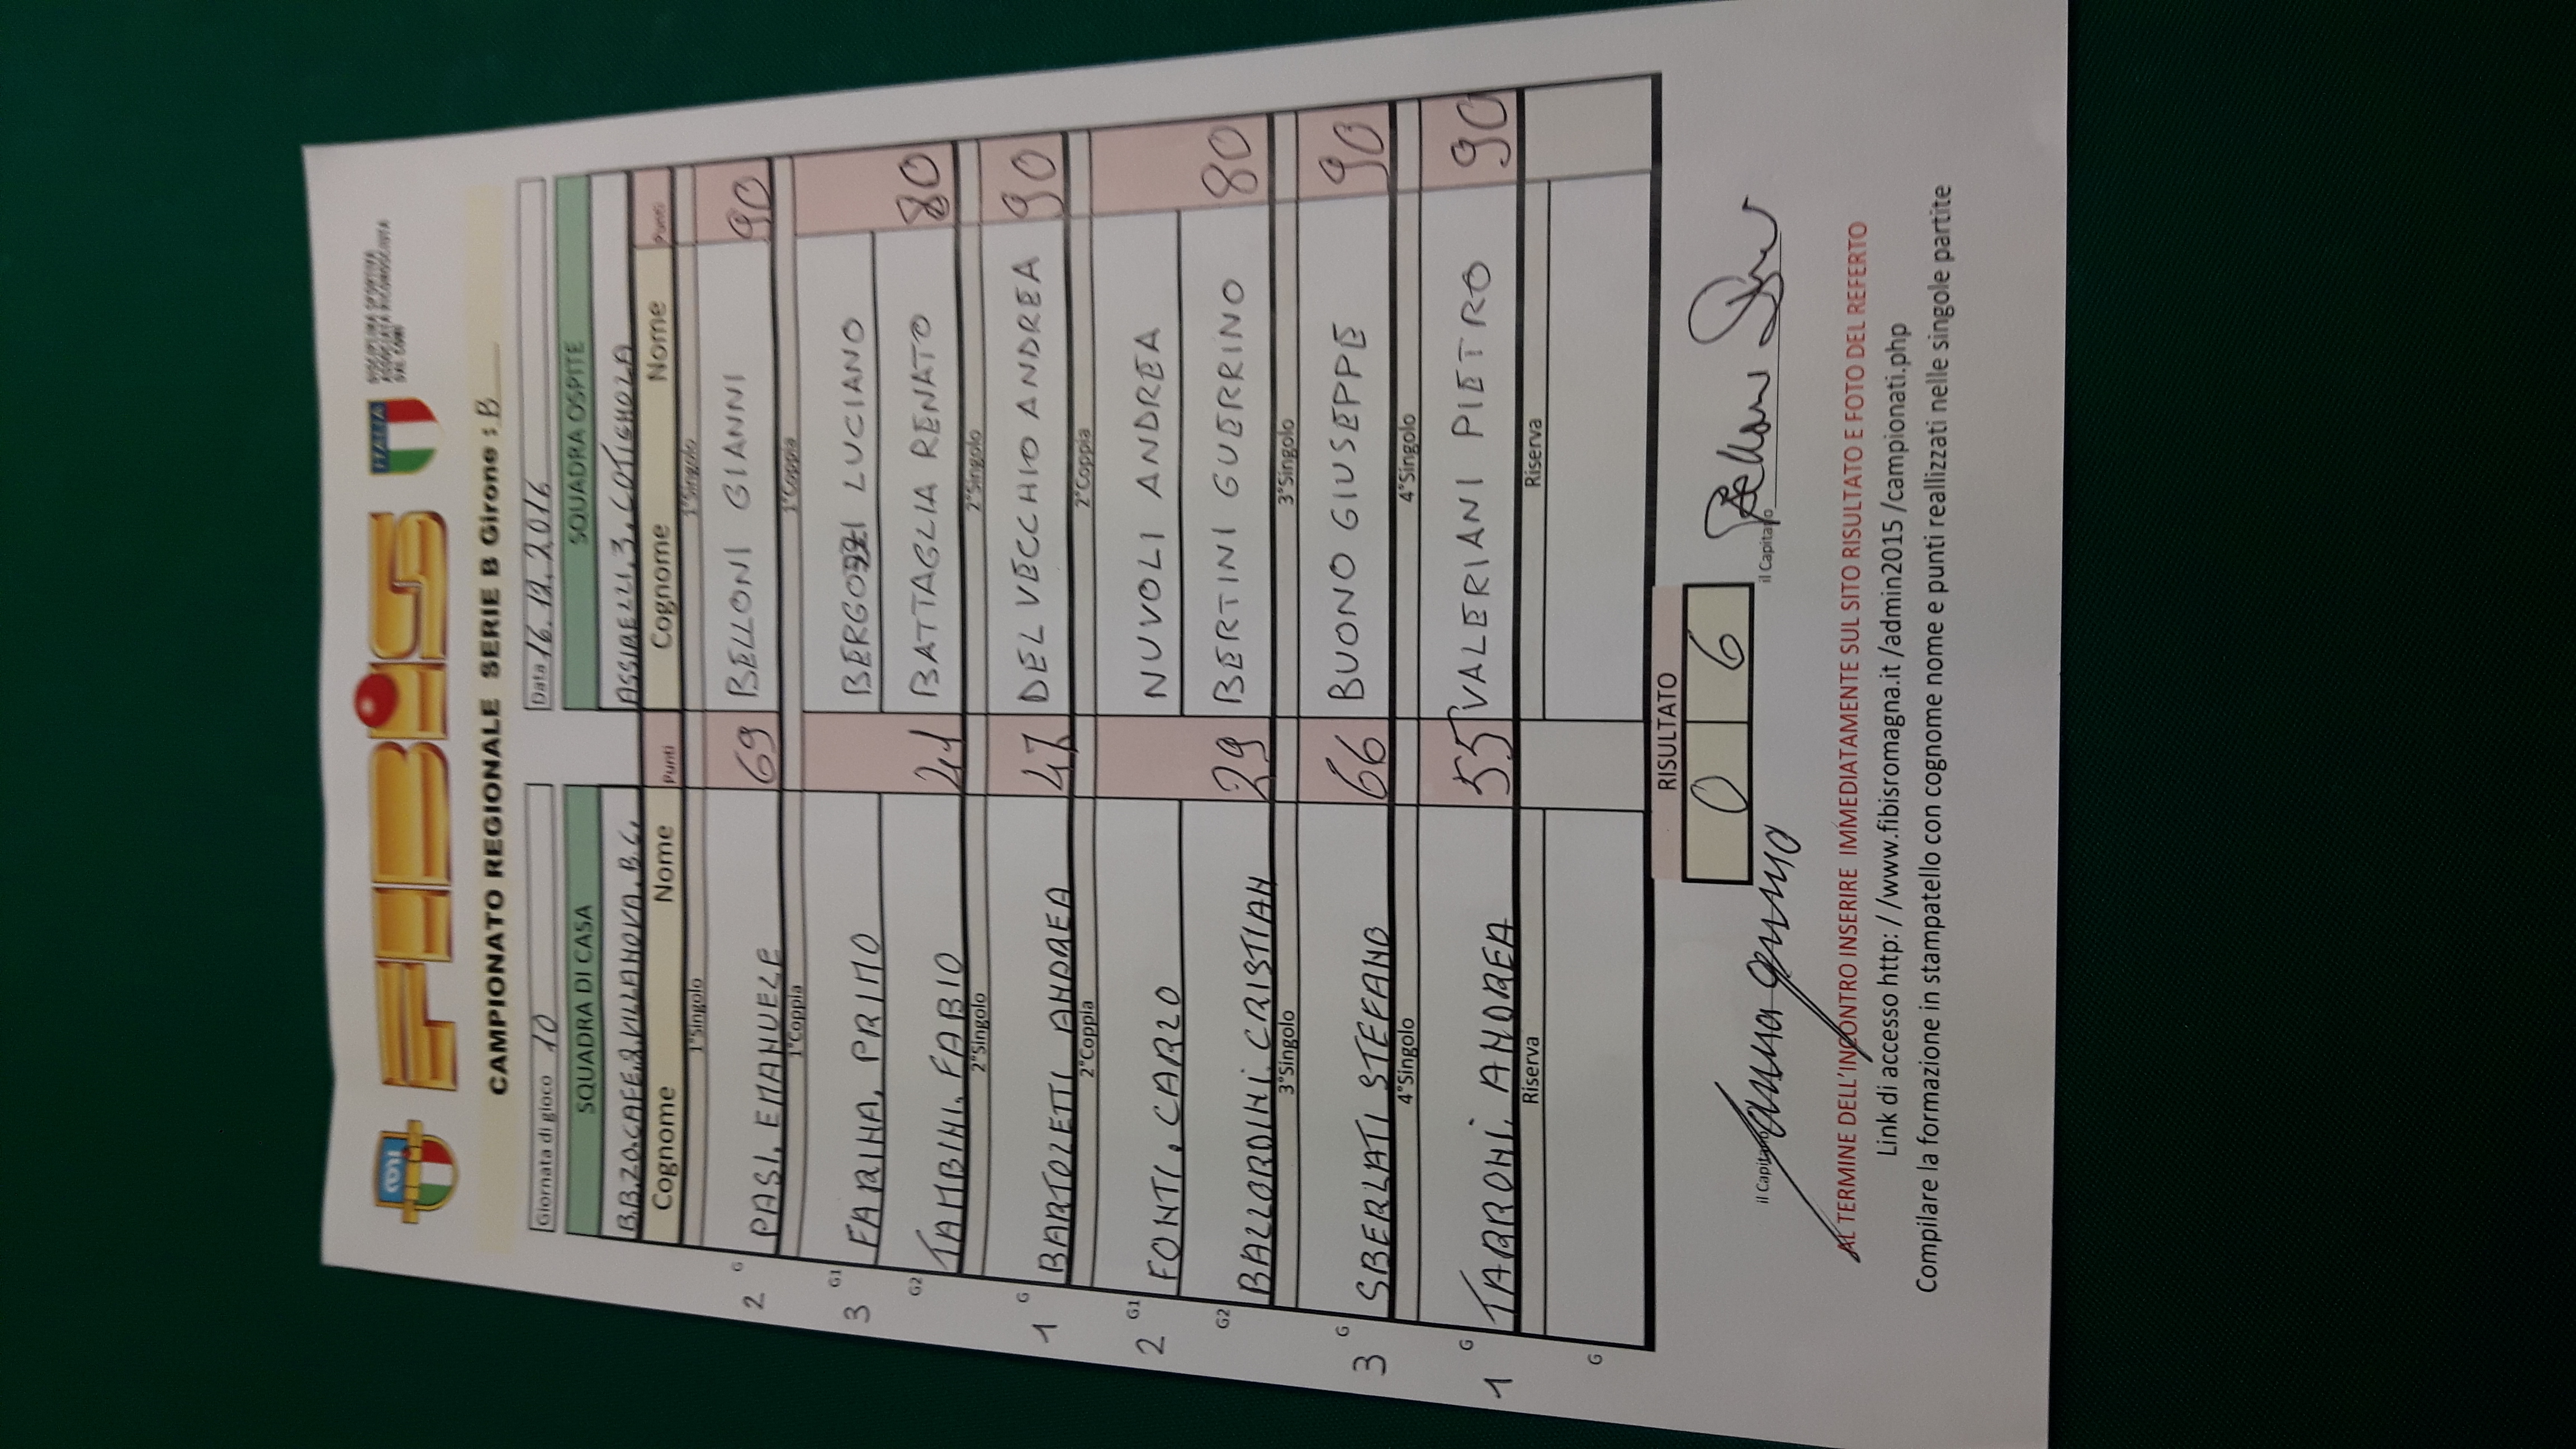 CONI
FIBiS
ITALIA
CAMPIONATO REGIONALE SERIE B Girone : B
Giornata di gioco 10 Data 16.12.2016
SQUADRA DI CASA SQUADRA OSPITE
B.B.ZO.CAFE.2.VILLANOVA.B.C. ASSIRELLI.3.COTIGNOLA
Cognome Nome Punti Cognome Nome Punti
1°Singolo 1°Singolo
2 G PASI. EMANUELE 69 BELLONI GIANNI 90
1°Coppia 1°Coppia
3 G1 FARINA. PRIMO BERGOZZI LUCIANO
G2 TAMBINI. FABIO 21 BATTAGLIA RENATO 80
2°Singolo 2°Singolo
1 G BARTOLETTI ANDREA 47 DEL VECCHIO ANDREA 90
2°Coppia 2°Coppia
2 G1 FONTI. CARLO NUVOLI ANDREA
G2 BALLORDINI. CRISTIAN 29 BERTINI GUERRINO 80
3°Singolo 3°Singolo
3 G SBERLATI STEFANO 66 BUONO GIUSEPPE 90
4°Singolo 4°Singolo
1 G TARRONI. ANDREA 55 VALERIANI PIETRO 90
Riserva Riserva
G
RISULTATO
0 6
il Capitano il Capitano
AL TERMINE DELL'INCONTRO INSERIRE IMMEDIATAMENTE SUL SITO RISULTATO E FOTO DEL REFERTO
Link di accesso http: / /www.fibisromagna.it /admin2015 /campionati.php
Compilare la formazione in stampatello con cognome nome e punti reallizzati nelle singole partite